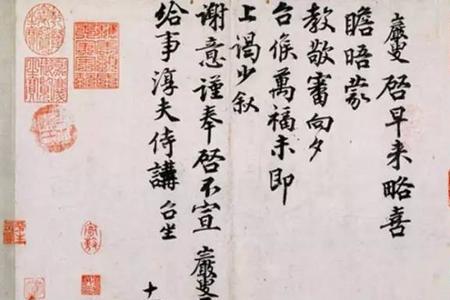 巖叟 啓早来略喜
瞻晤蒙
教敬審向夕
台候萬福未即
上謁少敘
謝意謹奉啓不宣 巖叟
給事淳夫侍講 台坐
十